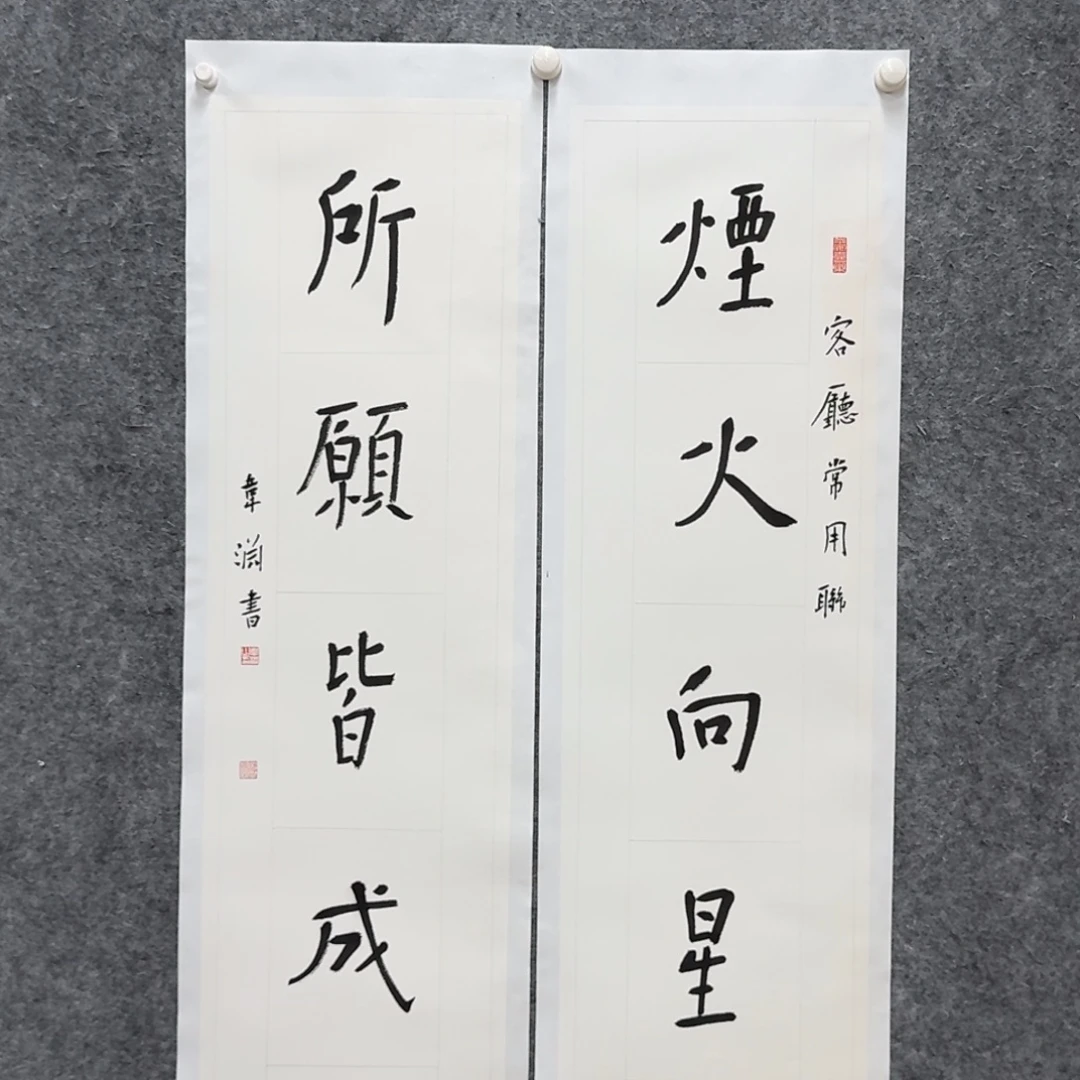 客廳常用聯
煙火向星
所願皆成
韋淵書